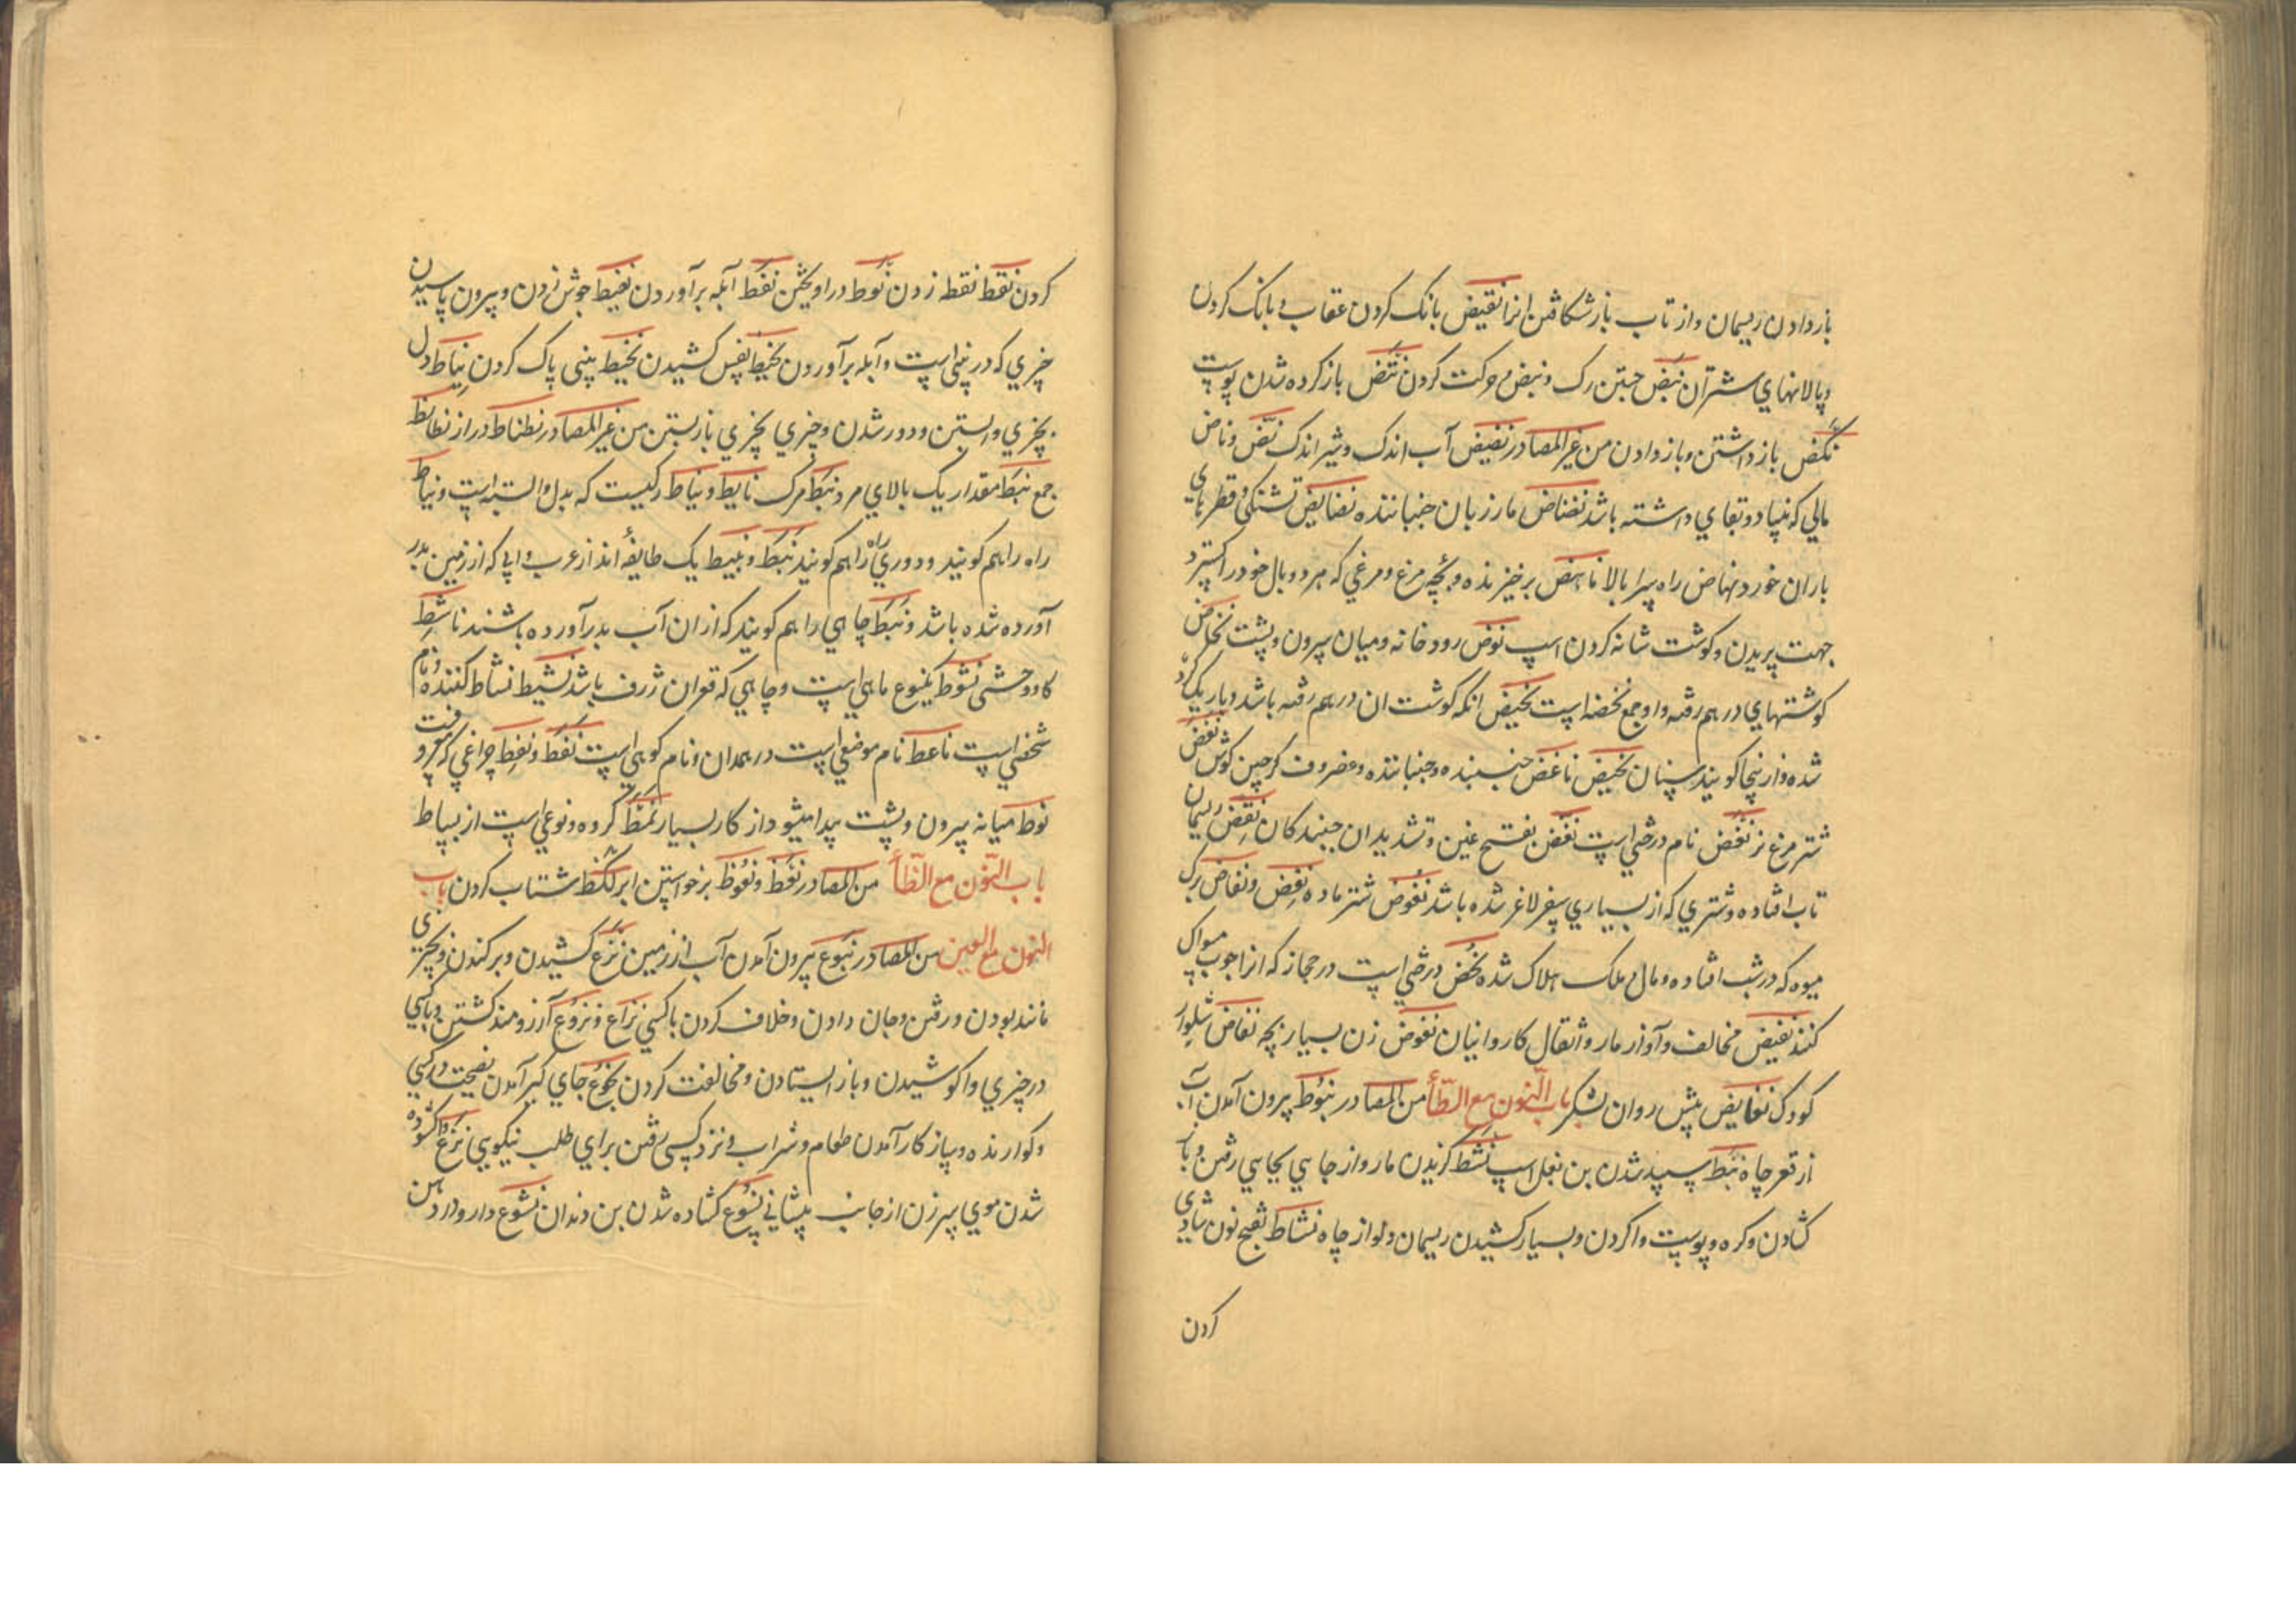 باز دادن ریسمان و از تاب باز شکافتن انرا نقیض بانک کردن عقاب و بانک کردن
و پالانهای شتران نبض جستن رک و نبض و حرکت کردن نتض باز کرده شدن پوست
نکض باز داشتن و باز دادن من غیر المصادر نضیض آب اندک و شیر اندک نض و ناض
مالی که بنیاد و بقای داشته باشد نضناض مار زبان جنباننده نضایض تشنکی و قطرهای
باران خورد نهاض راه سرا بالا ناهض برخیزنده و بچه مرغ و مرغی که هر دو بال خود را کسترد
جهت پریدن و کوشت شانه کردن اسپ نوض رودخانه و میان سرون و پشت نحاض
کوشتهای درهم رفته و او جمع نحضه است نحیض انکه کوشت ان درهم رفته باشد و باریک کرد
شده و ازینجا کویند سنان نحیض ناغض جنبنده و جنباننده و غضروف کرجین کوش نغض
شتر مرغ نر نغض نام درختی است نغض بفتح غین و تشدید ان جنبندکان نقض ریسمان
تاب افتاده و شتری که از بسیاری سفر لاغر شده باشد نقوض شتر ماده نفض و نفاض برک
میوه که در شب افتاده و مال و ملک هلاک شده نحض درختی است در حجاز که از او چوب مسواک
کنند نقیض مخالف و آواز مار و اثقال کاروانیان نفوض زن بسیار بچه نفاض شلوار
کودک نفایض پیش روان لشکر باب النون مع الطاء من المصادر نبوط بیرون آمدن آب
از قعر چاه نبط سپید شدن بن بغل اسپ نشط کزیدن مار و از جایی بجایی رفتن و باز
کشادن و کره و پوست واکردن و بسیار کشیدن ریسمان و دلو از چاه نشاط بفتح نون شادی
کردن
کردن نقط نقطه زدن نوط در اویختن نفط آبله برآوردن نفیط جوش زدن و بیرون پاسیدن
چیزی که در بینی است و آبله برآوردن نحیط نفس کشیدن نخیط بینی پاک کردن نیاط دل
بچیزی وابستن و دور شدن و چیزی بچیزی باز بستن من غیر المصادر نطناط دراز نطانط
جمع نبط مقدار یک بالای مرد نبط مرک نایط و نیاط رکیست که بدل وابسته است و نیاط
راه را هم کویند و دوری راه را هم کویند نبط و نبیط یک طایفه اند از عرب و ابی که از زمین بدر
آورده شده باشد و نبط چاهی را هم کویند که از ان آب بدر آورده باشند ناشط
کاو وحشی نشوط یکنوع ماهی است و چاهی که قوان ژرف باشد نشیط نشاط کننده و نام
شخصی است ناعط نام موضعی است در همدان و نام کوهی است نفط و نفط چراغی که میرفت
نوط میانه سرون و پشت پیدا میشود از کار بسیار نمط کروه و نوعی است از بساط
باب النون مع الظاء من المصادر نعظ و نعوظ برخواستن ایر نکظ شتاب کردن باب
النون مع العین من المصادر نبوع بیرون آمدن آب از زمین نزع کشیدن و برکندن و بچیزی
مانند بودن و رفتن و جان دادن و خلاف کردن با کسی نزاع و نزوع آرزومند کشتن و با کسی
در چیزی واکوشیدن و باز ایستادن و مخالفت کردن نجوع جای کیر آمدن نصیحت در کسی
و کوارنده و بیاز کار آمدن طعام و شراب و نزد کسی رفتن برای طلب نیکویی نزع واکشوده
شدن موی سر زن از جانب پیشانی نسوع کشاده شدن بن دندان نشوع دارو در دهن